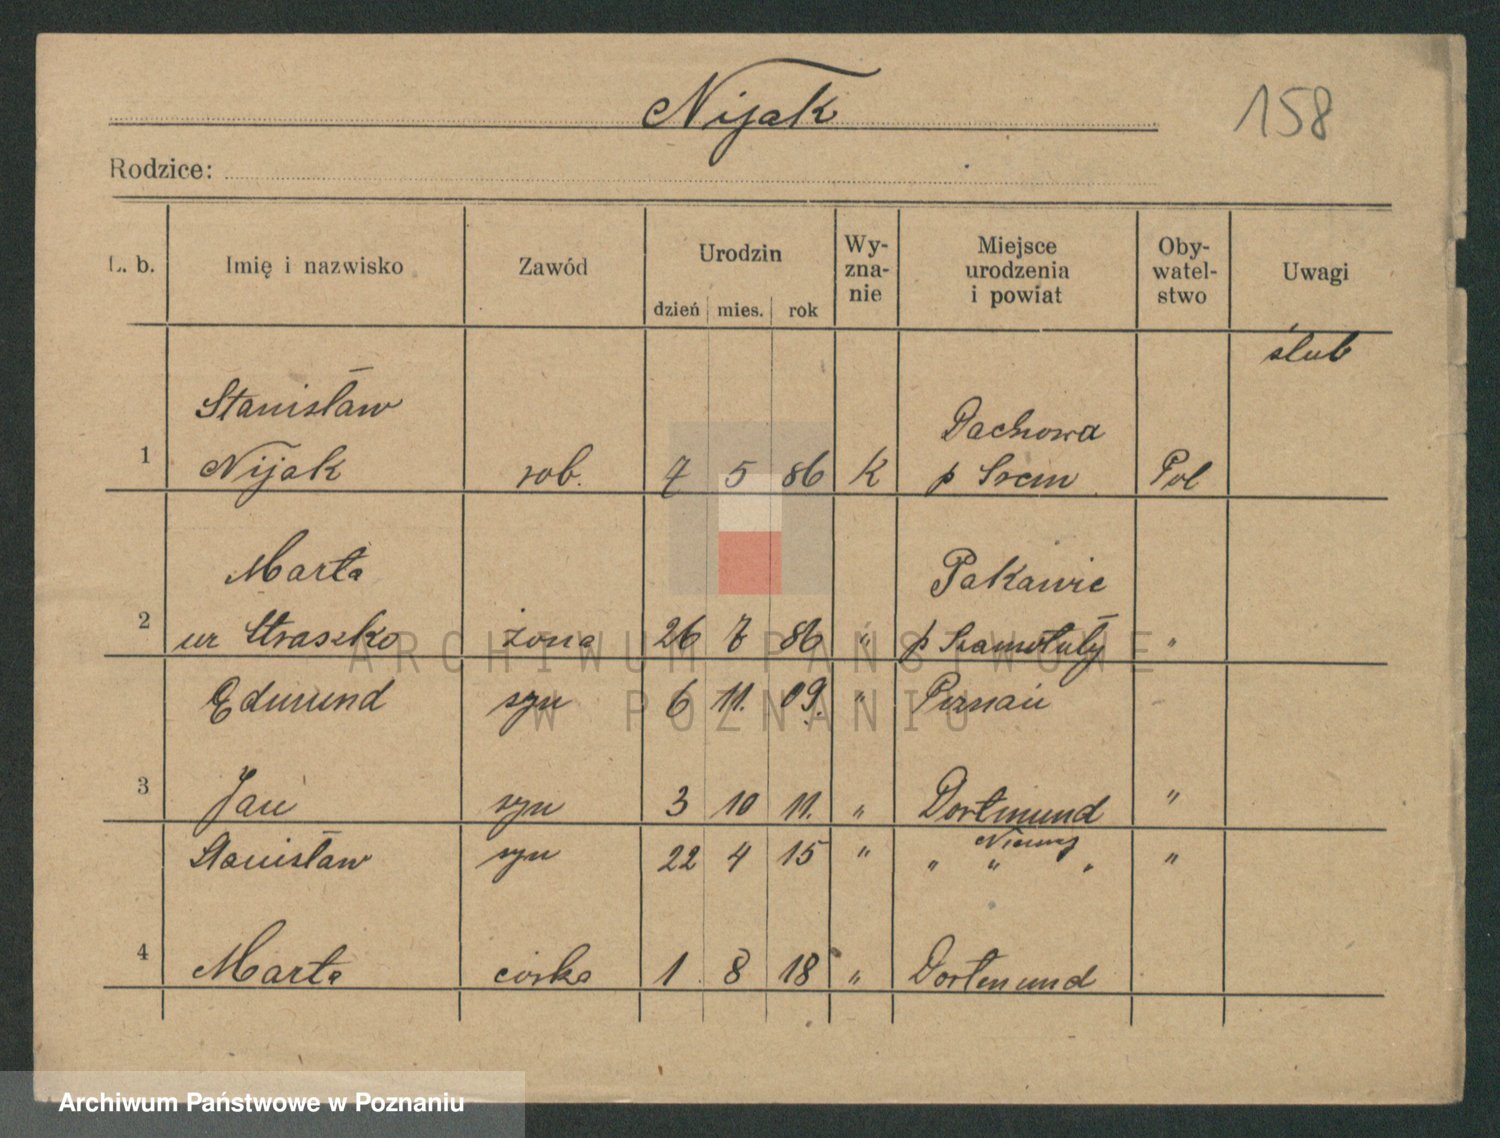 Nijak
158
Rodzice:
L. b. Imię i nazwisko Zawód Urodzin dzień mies. rok Wy-zna-nie Miejsce urodzenia i powiat Oby-watel-stwo Uwagi
ślub
Stanisław Dachowa
1 Nijak rob. 7 5 86 K p Srem Pol
Marta
2 ur Straszko żona 26 7 86 " p Szamotuły "
ARCHIWUM PAŃSTWOWE
W POZNANIU
Edmund syn 6 11. 09. "
3 Jan syn 3 10 11. " Dortmund "
Niemcy
Stanisław syn 22 4 15 " " " " "
4 Marta córka 1 8 18 " Dortmund
Archiwum Państwowe w Poznaniu